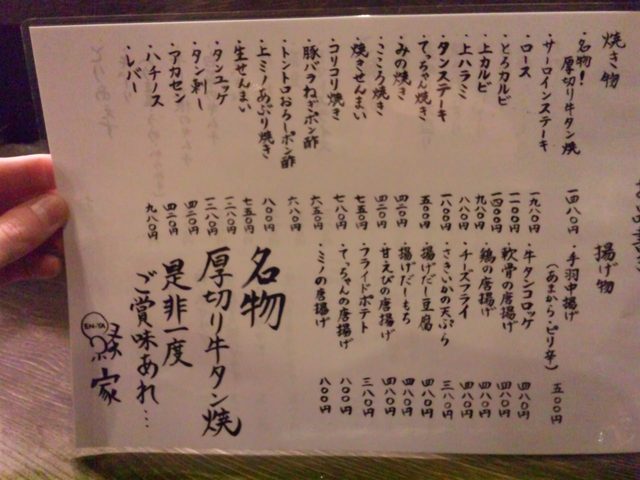 焼き物
・名物！
厚切り牛タン焼 一四八〇円
・サーロインステーキ 一九八〇円
・ロース 一一〇〇円
・とろカルビ 一四〇〇円
・上カルビ 九八〇円
・上ハラミ 八八〇円
・タンステーキ 一八〇〇円
・てっちゃん焼き 五八〇円
・みの焼き 四二〇円
・こころ焼き 四二〇円
・焼きせんまい 七五〇円
・コリコリ焼き 七八〇円
・豚バラねぎポン酢 六五〇円
・トントロおろしポン酢 六八〇円
・上ミノあぶり焼き 八〇〇円
・生せんまい 七五〇円
・タンユッケ 一二八〇円
・タン刺し 一二八〇円
・アカセン 四二〇円
・ハチノス 四二〇円
・レバー 九八〇円
揚げ物
・手羽中揚げ
（あまから・ピリ辛） 五八〇円
・牛タンコロッケ 四八〇円
・軟骨の唐揚げ 四八〇円
・鶏の唐揚げ 四八〇円
・チーズフライ 四八〇円
・さきいかの天ぷら 三八〇円
・揚げだし豆腐 四八〇円
・揚げだしもち 四八〇円
・甘えびの唐揚げ 四八〇円
・フライドポテト 三八〇円
・てっちゃんの唐揚げ 八〇〇円
・ミノの唐揚げ 八〇〇円
名物
厚切り牛タン焼
是非一度
ご賞味あれ…
EN-YA
家